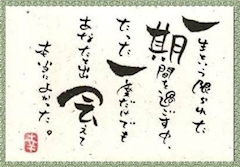 一生という限られた
期間を過ごす中、
たった一度だけでも
あなたと出会えて
本当によかった。